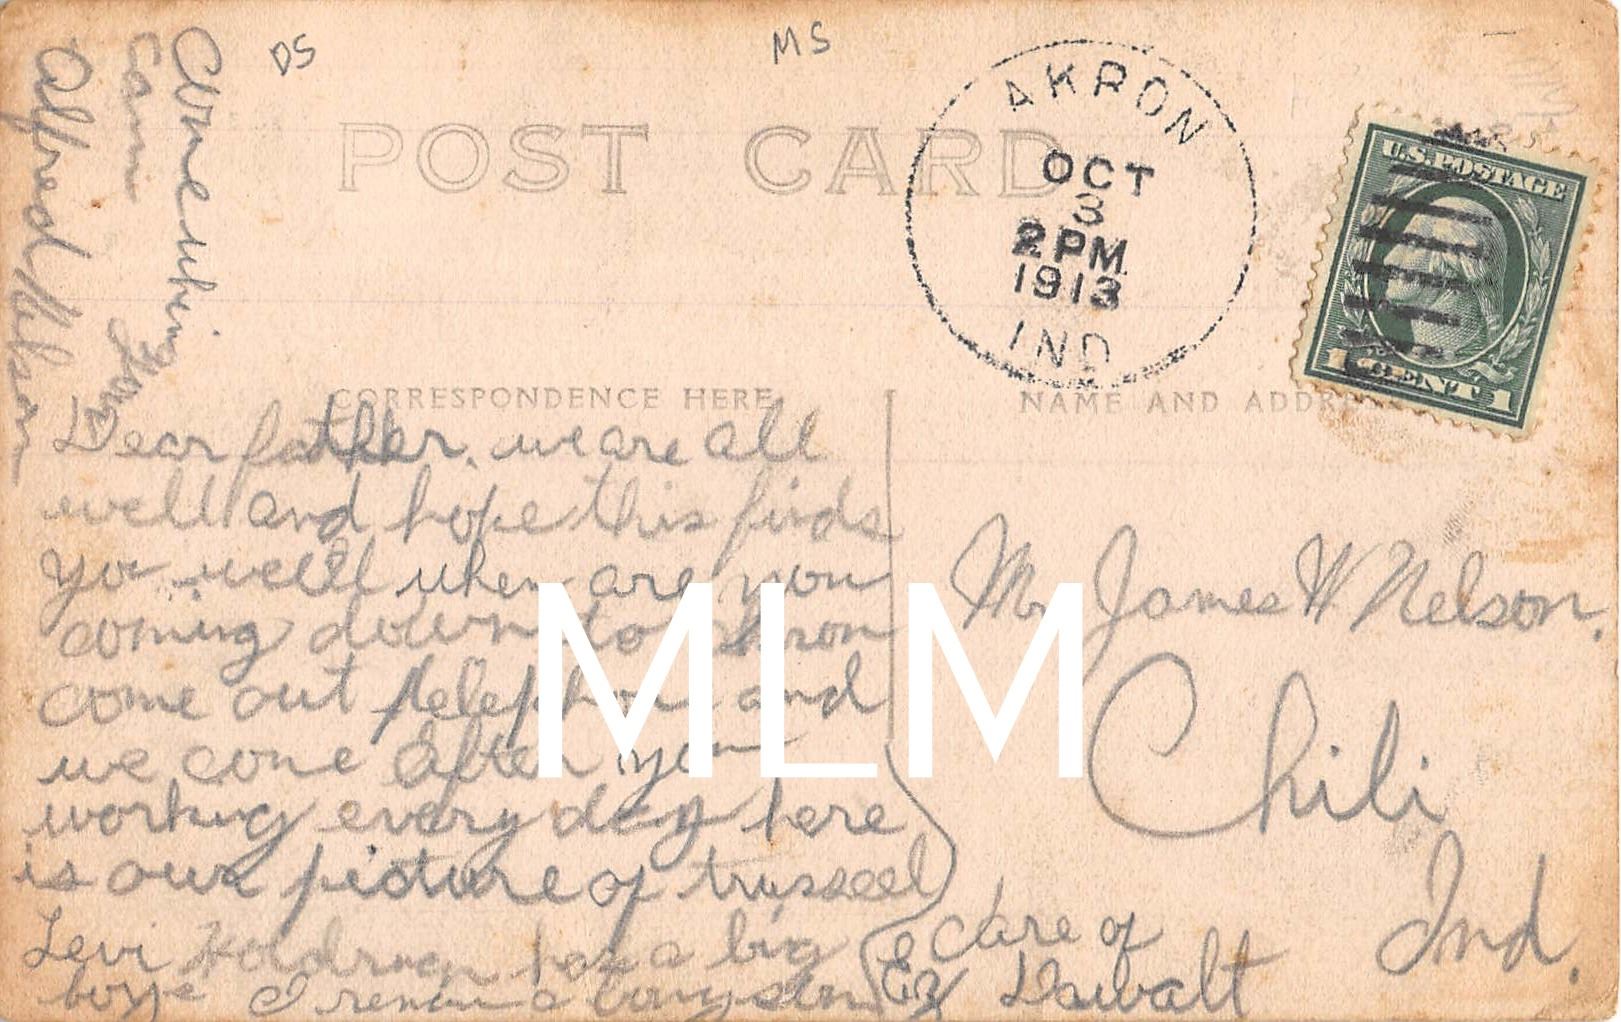 DS
MS
POST CARD
AKRON
OCT
3
2 PM
1913
IND
U.S. POSTAGE
1 CENT 1
CORRESPONDENCE HERE
NAME AND ADDRESS
Dear father, we are all
well and hope this finds
you well when are you
coming down to Akron
come out telephon and
we come after you
working every day here
is our picture of trusseel
Levi Holdrugh has a big
boye I remain
Mr James W Nelson.
Chili
Ind.
Care of
Ez Dawalt
Come when
can
Alfred Nelson
MLM